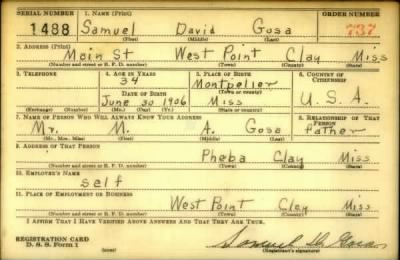 SERIAL NUMBER 1. NAME (Print)
1488 Samuel David Gosa 737
(First) (Middle) (Last)
2. ADDRESS (Print)
Main St West Point Clay Miss
(Number and street or R. F. D. number) (Town) (County) (State)
3. TELEPHONE 4. AGE IN YEARS 5. PLACE OF BIRTH 6. COUNTRY OF CITIZENSHIP
34 Montpelier
DATE OF BIRTH (Town or county)
June 30 1906 Miss U.S.A.
(Exchange) (Number) (Mo.) (Day) (Yr.) (State or country)
7. NAME OF PERSON WHO WILL ALWAYS KNOW YOUR ADDRESS 8. RELATIONSHIP OF THAT PERSON
Mr. M. A. Gosa father
(Mr., Mrs., Miss) (First) (Middle) (Last)
9. ADDRESS OF THAT PERSON
Pheba Clay Miss
(Number and street or R. F. D. number) (Town) (County) (State)
10. EMPLOYER'S NAME
self
11. PLACE OF EMPLOYMENT OR BUSINESS
West Point Clay Miss
(Number and street or R. F. D. number) (Town) (County) (State)
I AFFIRM THAT I HAVE VERIFIED ABOVE ANSWERS AND THAT THEY ARE TRUE.
REGISTRATION CARD
D. S. S. Form 1 Samuel D. Gosa
(Registrant's signature)